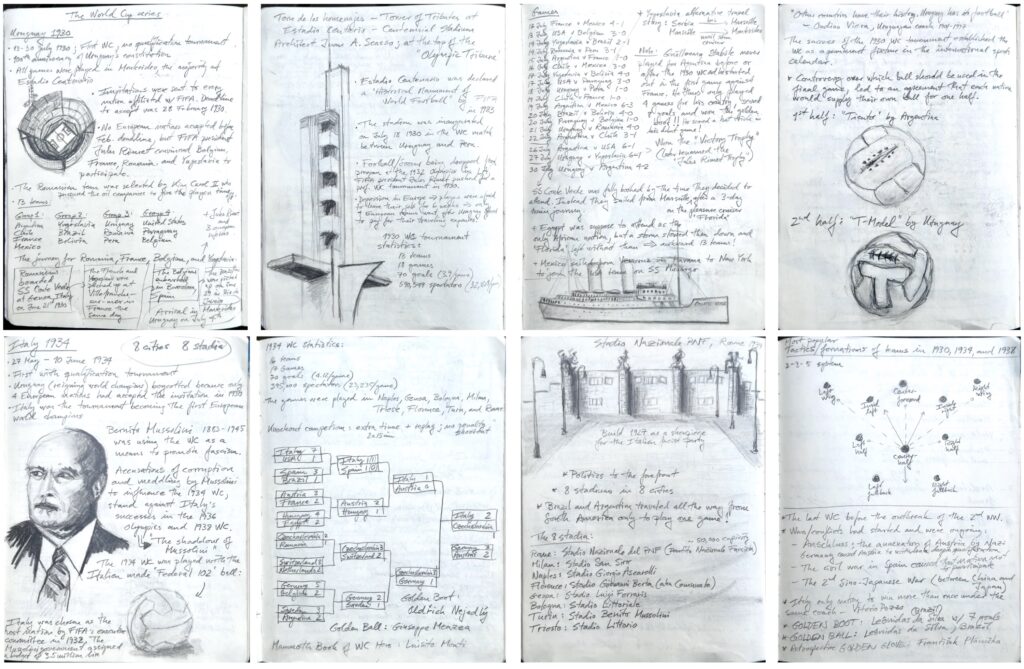 The World Cup series
Uruguay 1930
13-30 July 1930; First WC, no qualification tournament
100th anniversary of Uruguay's constitution
All games were played in Montevideo, the majority at
Estadio Centenario
Invitations were sent to every
nation affiliated w/ FIFA. Deadline
to accept was 28 February 1930
No European nations accepted before
Feb. deadline, but FIFA president
Jules Rimet convinced Belgium,
France, Romania, and Yugoslavia to
participate.
The Romanian team was selected by King Carol II who
pressured the oil companies to give the players time off
13 teams:
Group 1 Group 2 Group 3 Group 4
Argentina Yugoslavia Uruguay United States
Chile Brazil Romania Paraguay
France Bolivia Peru Belgium
Mexico
The journey for Romania, France, Belgium, and Yugoslavia:
Romanians
boarded
SS Conte Verde
at Genoa, Italy
on June 21st 1930
The French and
were picked up at
Villefranche-
sur-mer in
France the
same day
The Belgians
embarked
in Barcelona,
Spain
Arrival in Montevideo
Uruguay on July 4th
Torre de los homenajes - Tower of Tributes at
Estadio Centenario - Centennial Stadium
Architect Juan A. Scasso; at the top of the
Olympic Tribune
Estadio Centenario was declared
a "Historical Monument of
World Football" by FIFA
in 1983
The stadium was inaugurated
on July 18 1930 in the WC match
between Uruguay and Peru.
Football/soccer being dropped from
program of the 1932 Olympics by LA.
FIFA president Jules Rimet pushed for a
prof. WC tournament in 1930.
Depression in Europe → players were afraid
to leave their job for 2 months → only
4 European teams went after Uruguay offered
to pay for their traveling expenses
1930 WC tournament
statistics:
13 teams
18 games
70 goals (3.9/game)
590,549 spectators (32,808/game)
Games
13 July France v Mexico 4-1
13 July USA v Belgium 3-0
14 July Yugoslavia v Brazil 2-1
14 July Romania v Peru 3-1
15 July Argentina v France 1-0
16 July Chile v Mexico 3-0
17 July Yugoslavia v Bolivia 4-0
17 July USA v Paraguay 3-0
18 July Uruguay v Peru 1-0
19 July Chile v France 1-0
19 July Argentina v Mexico 6-3
20 July Brazil v Bolivia 4-0
20 July Paraguay v Belgium 1-0
21 July Uruguay v Romania 4-0
22 July Argentina v Chile 3-1
26 July Argentina v USA 6-1
27 July Uruguay v Yugoslavia 6-1
30 July Uruguay v Argentina 4-2
+ Yugoslavia alternative travel
story: Serbia
Marseille,
Marseille → Montevideo
Note: Guillermo Stabile never
played for Argentina before or
after the 1930 WC. He debuted
in the first game against
France. He thus only played
4 games for his country, scored
8 goals and won
He scored a hat trick in
his debut game!
Won the "Victory Trophy"
(later renamed the
"Jules Rimet Trophy")
SS Conte Verde was fully booked by the time they decided to
attend. Instead they sailed from Marseille, after a 3-day
train journey on the pleasure cruiser
"Florida"
+ Egypt was suppose to attend as the
only African nation, but a storm slowed them down and
"Florida" left without them → awkward 13 teams!
+ Mexico sailed from to New York
to join the USA team on SS Munargo
"Other nations have their history, Uruguay has its football"
- Ondino Viera, Uruguayan coach
The success of the 1930 WC tournament established the
WC as a permanent fixture in the international sports
calendar.
Controversy over which ball should be used in the
final game, led to an agreement that each nation
would supply their own ball for one half.
1st half: "Tiento" by Argentina
2nd half: "T-Model" by Uruguay
Italy 1934
8 cities 8 stadia
27 May - 10 June 1934
First with qualification tournament
Uruguay (reigning world champions) boycotted because only
4 European nations had accepted the invitation in 1930
Italy won the tournament becoming the first European
world champions
Benito Mussolini 1883-1945
was using the WC as a
means to promote fascism.
Accusations of corruption
and meddling by Mussolini
to influence the 1934 WC,
stand against Italy's
successes in the 1936
Olympics and 1938 WC.
"The shadow of
Mussolini"
The 1934 WC was played with the
Italian made "Federal 102" ball:
Italy was chosen as the
host nation by FIFA's executive
committee in 1932. The
government assigned
a budget of 3.5 million lire
1934 WC statistics:
16 teams
17 games
70 goals (4.12/game)
395,000 spectators (23,235/game)
The games were played in Naples, Genoa, Bologna, Milan,
Trieste, Florence, Turin, and Rome
Knockout competition: extra time + replay; no penalty
shootout
2x15 min
Italy 7
USA 1
Spain 3
Brazil 1
Italy 1|1
Spain 1|0
Austria 3
France 2
Hungary 4
Egypt 2
Austria 2
Hungary 1
Italy 1
Austria 0
Czechoslovakia 2
Romania 1
Switzerland 3
Netherlands 2
Czechoslovakia 3
Switzerland 2
Germany 5
Belgium 2
Sweden 3
Argentina 2
Germany 2
Sweden 1
Czechoslovakia 3
Germany 1
Italy 2
Czechoslovakia 1
Germany 3
Austria 2
Golden Boot:
Oldřich Nejedlý
Golden Ball: Giuseppe Meazza
Mammoth Book of WC Hero: Luisito Monti
Stadio Nazionale PNF, Rome
Build 1927 as a showpiece
for the Italian fascist party
Politics to the forefront
8 stadiums in 8 cities
Brazil and Argentina traveled all the way from
South America only to play one game!
The 8 stadia:
50,000 capacity
Rome: Stadio Nazionale del PNF (Partito Nazionale Fascista)
Milan: Stadio San Siro
Naples: Stadio Giorgio Ascarelli
Florence: Stadio Giovanni Berta (aka Comunale)
Genoa: Stadio Luigi Ferraris
Bologna: Stadio Littoriale
Turin: Stadio Benito Mussolini
Trieste: Stadio Littorio
Most popular
Tactics/formations of teams in 1930, 1934, and 1938
2-3-5 system
Left
wing
Inside
left
Center
forward
Inside
right
Right
wing
Left
half
Center
half
Right
half
Left
fullback
Right
fullback
The last WC before the outbreak of the 2nd WW.
Wars/conflicts had started and were ongoing:
- Anschluss: the annexation of Austria by Nazi
Germany caused Austria to withdraw despite qualification
- The civil war in Spain caused
to not participate
- The 2nd Sino-Japanese War (between China and
Japan)
Italy only nation to win more than once under the
same coach - Vittorio Pozzo
GOLDEN BOOT: Leônidas da Silva w/ 7 goals (Brazil)
GOLDEN BALL: Leônidas da Silva, Brazil
Retrospective GOLDEN GLOVE: František Plánička